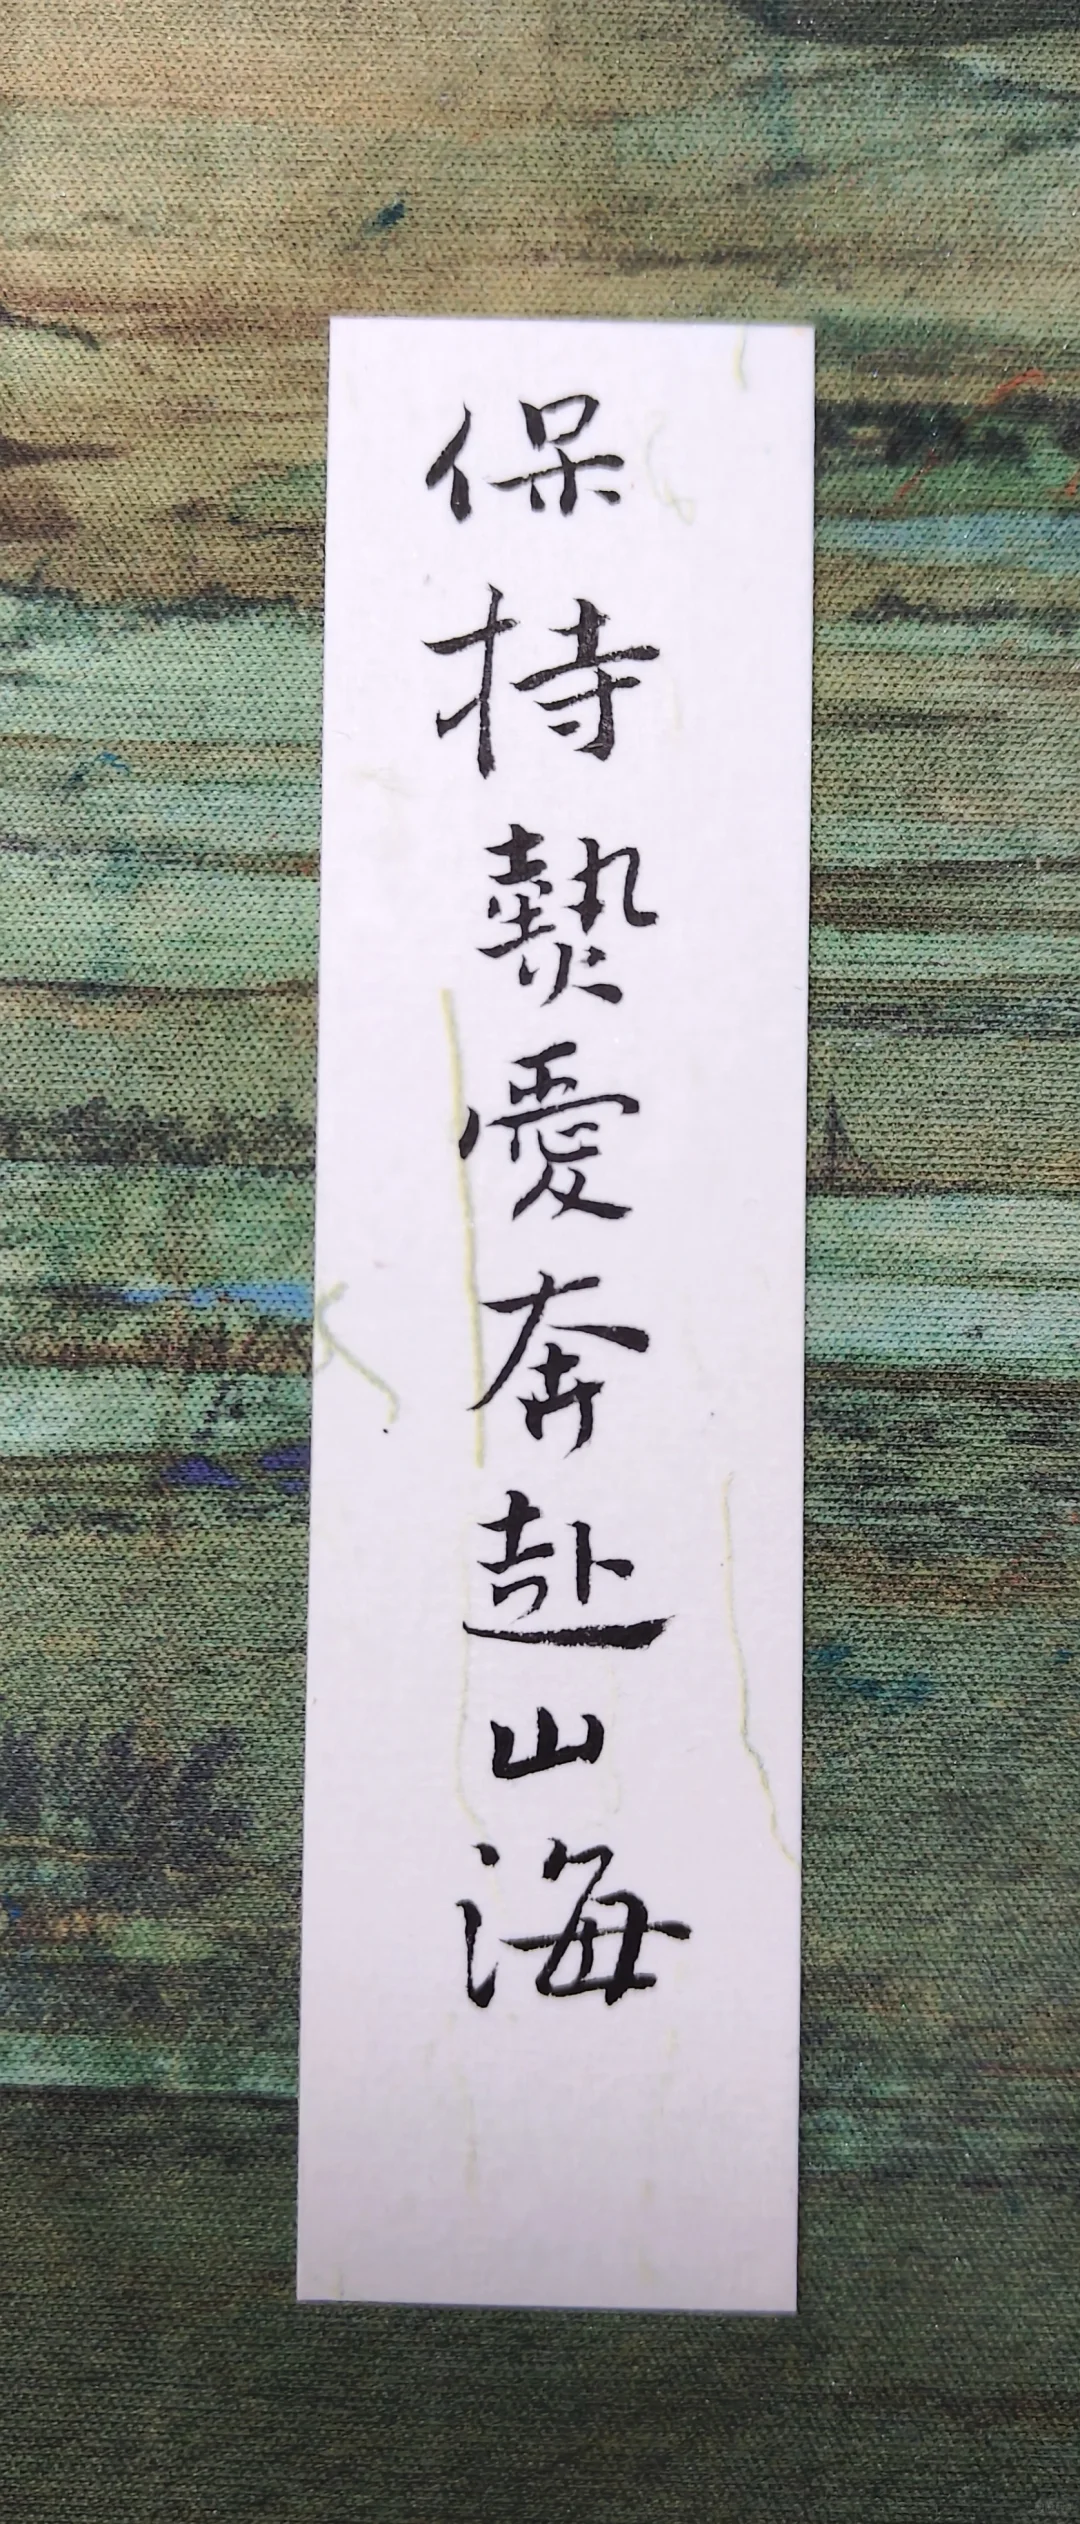 保持熱愛奔赴山海